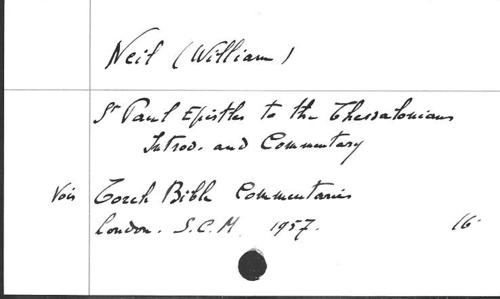 Neil (William)
St Paul Epistles to the Thessalonians
Introd. and Commentary
Vois Torch Bible Commentaries
London. S.C.M. 1957. 16°